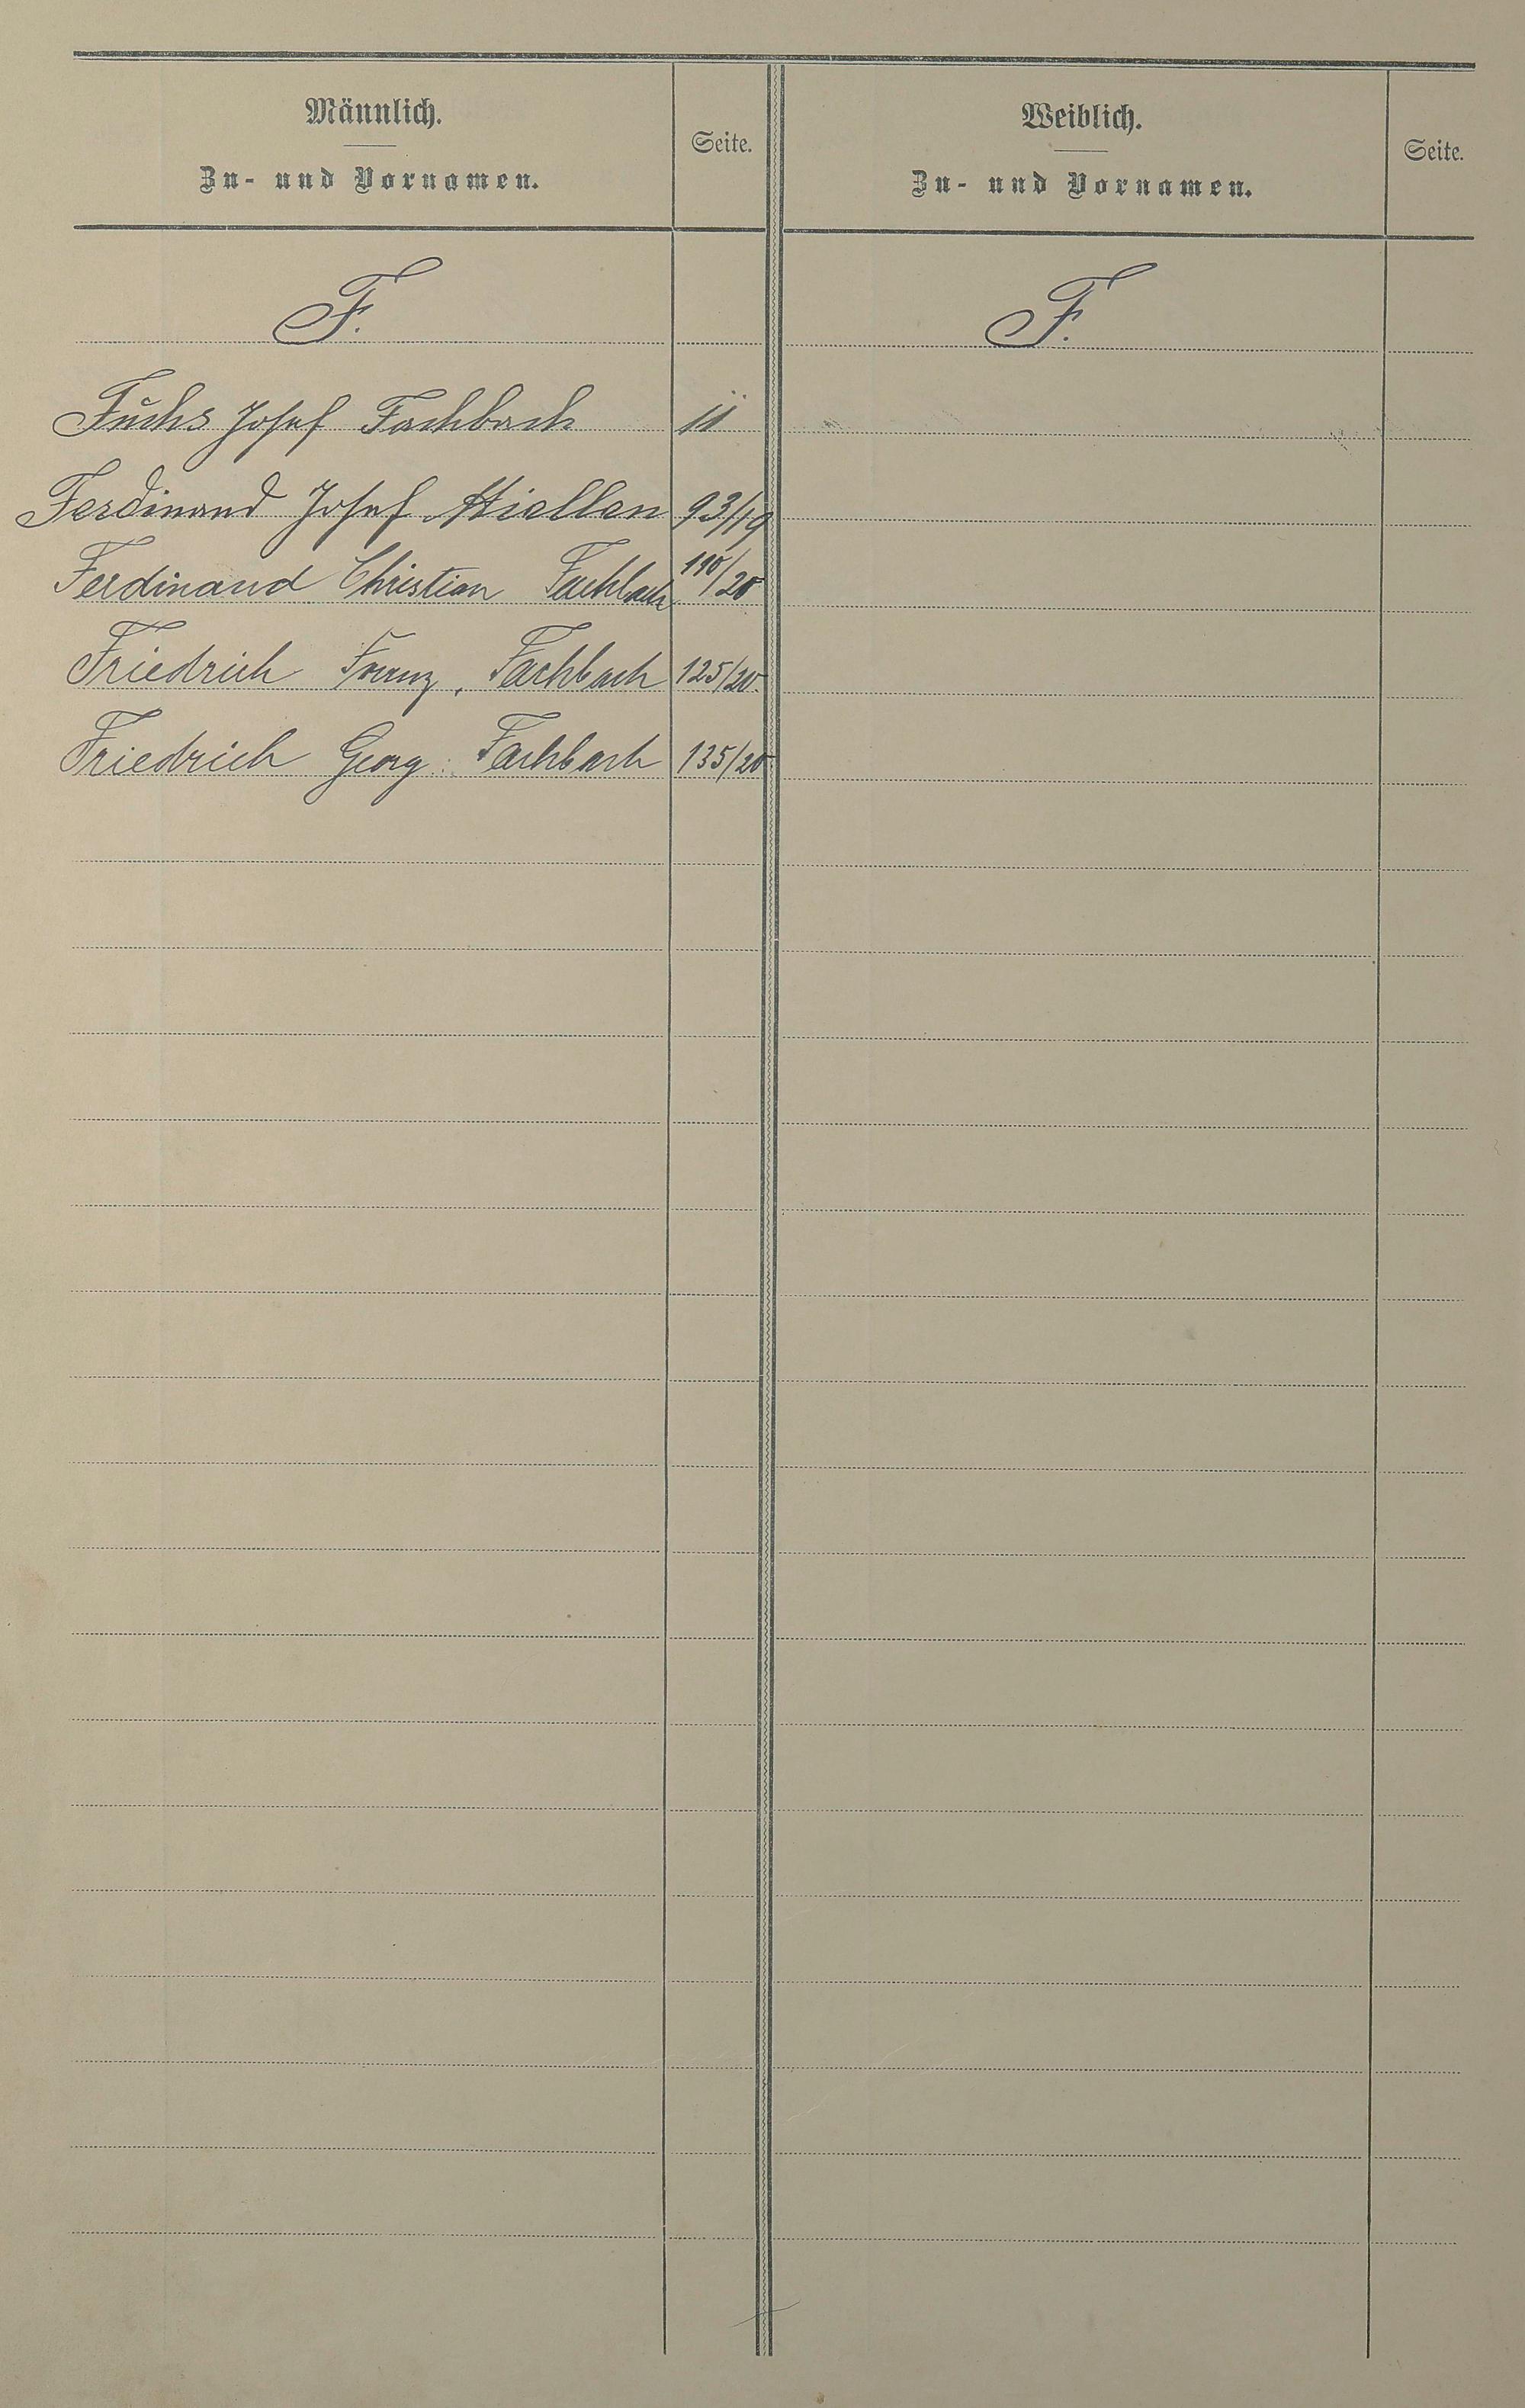 Männlich.
Zu- und Vornamen.
Seite.
Weiblich.
Zu- und Vornamen.
Seite.
F.
F.
Fuchs Josef Fachbach 11
Ferdinand Josef Miellen 93/19
Ferdinand Christian Fachbach 110/20
Friedrich Franz, Fachbach 125/20.
Friedrich Georg Fachbach 135/20